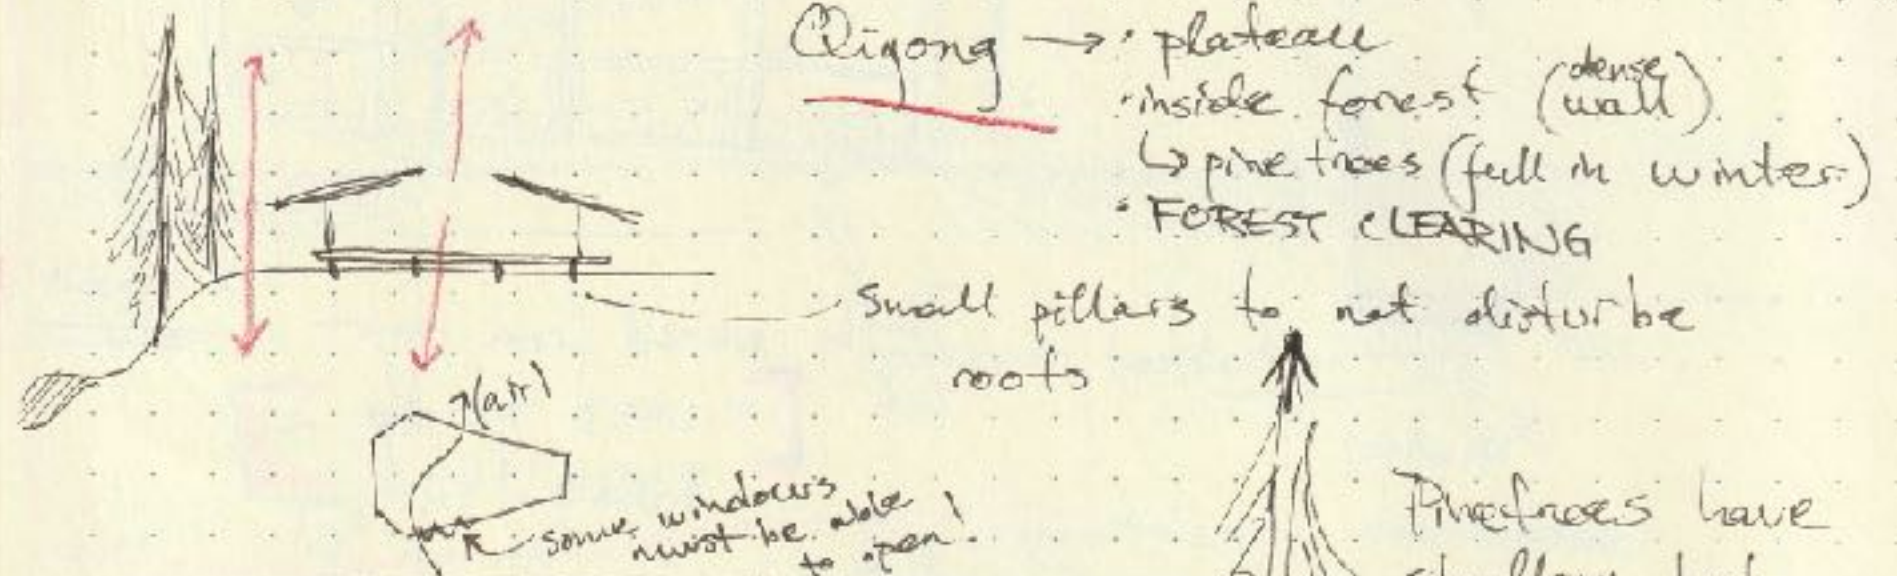 Qigong → • plateau
• inside forest (dense wall)
↳ pine trees (full in winter)
• FOREST CLEARING
Small pillars to not disturbe
roots
(air)
some windows
must be able
to open!
Pinetrees have